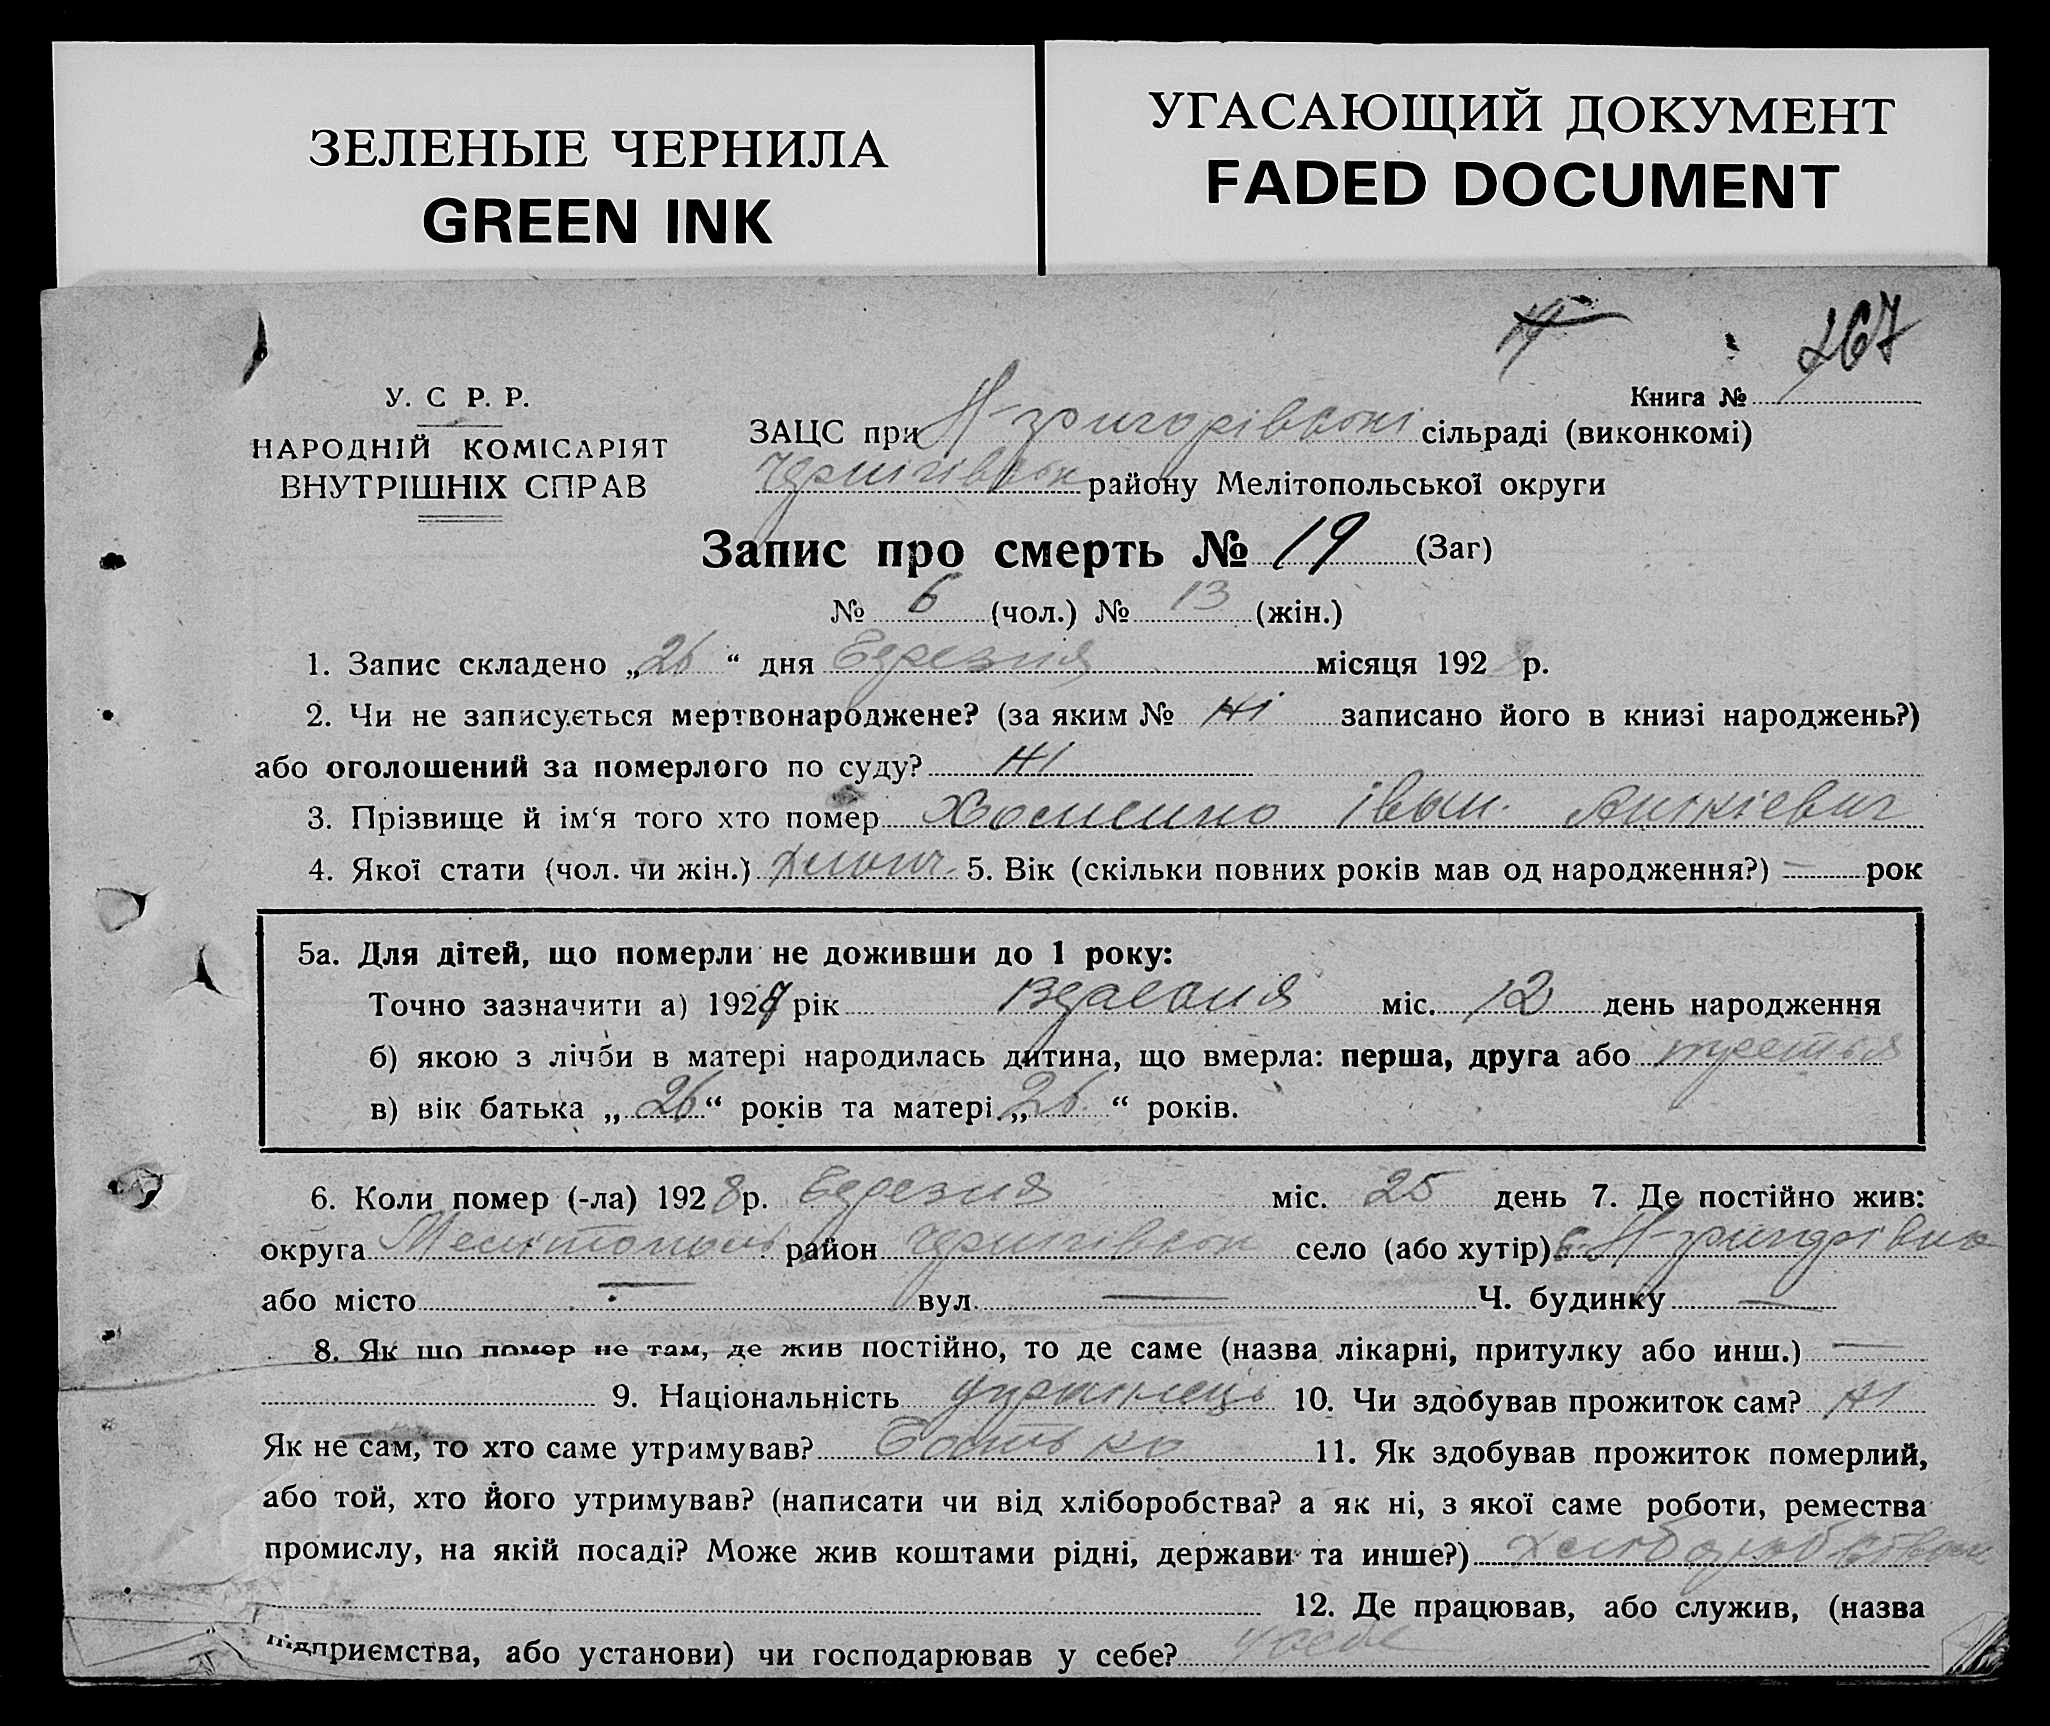 ЗЕЛЕНЫЕ ЧЕРНИЛА
GREEN INK
УГАСАЮЩИЙ ДОКУМЕНТ
FADED DOCUMENT
У. С Р. Р.
НАРОДНІЙ КОМІСАРІЯТ
ВНУТРІШНІХ СПРАВ
Книга № 167
ЗАЦС при Н-григорівскі сільраді (виконкомі)
Чернігівськ району Мелітопольської округи
Запис про смерть № 19 (Заг)
№ 6 (чол.) № 13 (жін.)
1. Запис складено „26“ дня Березня місяця 1928 р.
2. Чи не записується мертвонароджене? (за яким № Ні записано його в книзі народжень?)
або оголошений за померлого по суду? Ні
3. Прізвище й ім‘я того хто помер Іван
4. Якої стати (чол. чи жін.) хлопч. 5. Вік (скільки повних років мав од народження?) — рок
5а. Для дітей, що померли не доживши до 1 року:
Точно зазначити а) 1927 рік Вересня міс. 12 день народження
б) якою з лічби в матері народилась дитина, що вмерла: перша, друга або третья
в) вік батька „26“ років та матері „26“ років.
6. Коли помер (-ла) 1928 р. Березня міс. 25 день 7. Де постійно жив:
округа Мелітополь район Чернігівськ село (або хутір) с. Н-григорівка
або місто — вул. — Ч. будинку —
8. Як що помер не там, де жив постійно, то де саме (назва лікарні, притулку або инш.) —
9. Національність українець 10. Чи здобував прожиток сам? Ні
Як не сам, то хто саме утримував? Батько 11. Як здобував прожиток померлий,
або той, хто його утримував? (написати чи від хліборобства? а як ні, з якої саме роботи, ремества
промислу, на якій посаді? Може жив коштами рідні, держави та инше?) хліборобством
12. Де працював, або служив, (назва
підприємства, або установи) чи господарював у себе? у себе